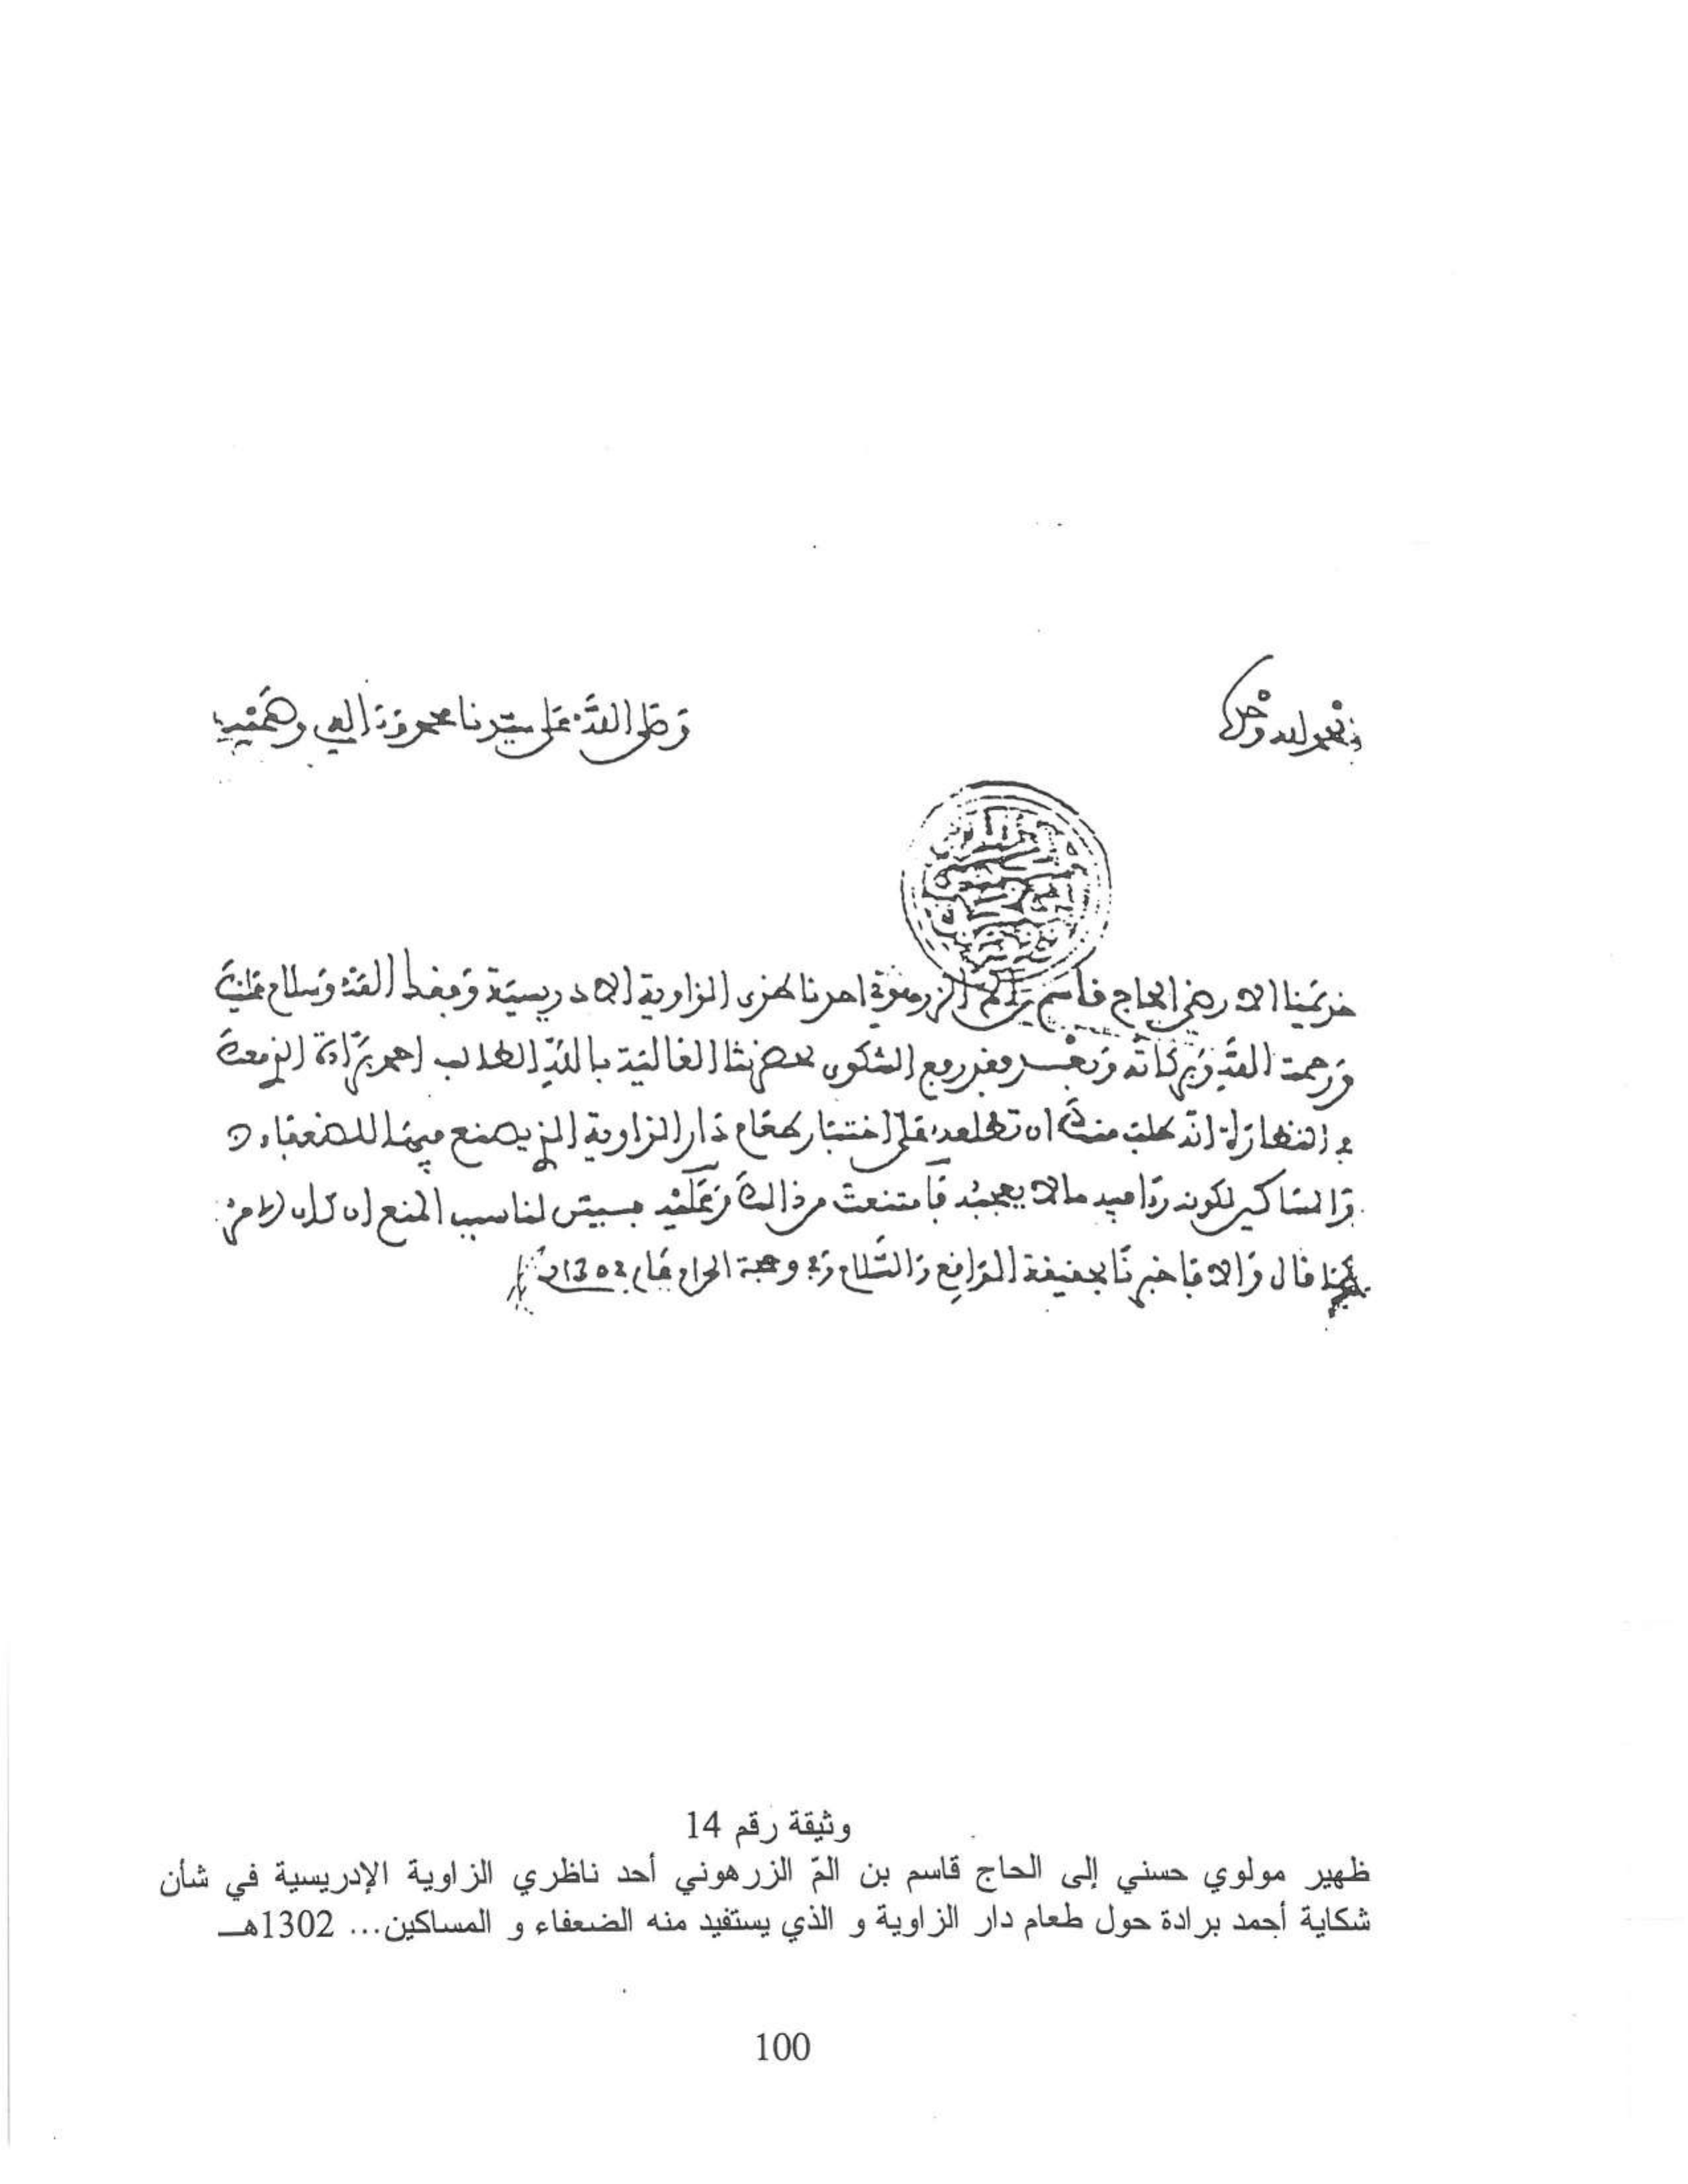 الحمد لله وحده
وصلى الله على سيدنا محمد وءاله وصحبه
خديمنا الارضى الحاج قاسم بن الم الزرهوني احد ناظرى الزاوية الادريسية وفقك الله وسلام عليك
ورحمت الله وبركاته وبعد فقد رفع الشكوى لحضرتنا العالية بالله الطالب احمد برادة الذي معك
في النظارة انه طلب منك ان تطلعه على اختبار طعام دار الزاوية الذي يصنع فيها للضعفاء
والمساكين لكونه رءا فيه ما لا يعجبه فامتنعت من ذالك وعليه فبين لنا سبب المنع ان كان الامر
كما قال والا فاخبرنا بحقيقة الواقع والسلام في حجة الحرام عام 1302
وثيقة رقم 14
ظهير مولوي حسني إلى الحاج قاسم بن المّ الزرهوني أحد ناظري الزاوية الإدريسية في شأن
شكاية أحمد برادة حول طعام دار الزاوية و الذي يستفيد منه الضعفاء و المساكين... 1302هـ
100